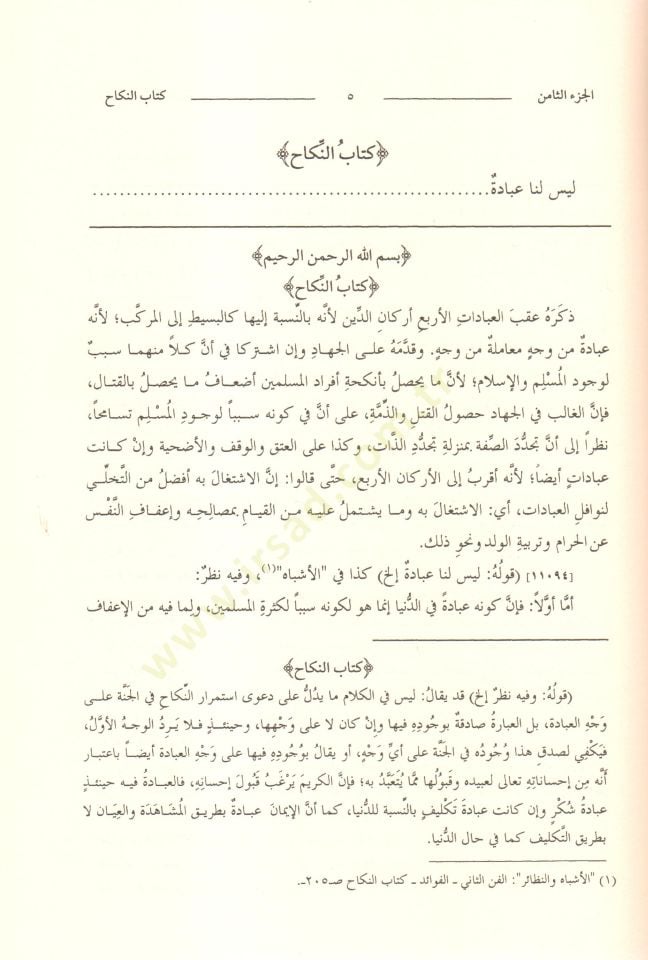 الجزء الثامن ــــــــــــــ ٥ ــــــــــــــ كتاب النكاح
﴿كتابُ النِّكاح﴾
ليس لنا عبادةٌ.......................................................
﴿بسم الله الرحمن الرحيم﴾
﴿كتابُ النِّكاح﴾
ذكَرَهُ عقبَ العباداتِ الأربعِ أركانِ الدِّين لأنَّه بالنِّسبة إليها كالبسيطِ إلى المركَّب؛ لأنَّه
عبادةٌ من وجهٍ معاملةٌ من وجهٍ. وقدَّمَهُ على الجهادِ وإن اشتركا في أنَّ كلاًّ منهما سببٌ
لوجود المُسْلِم والإسلام؛ لأنَّ ما يحصلُ بأنكحةِ أفراد المسلمين أضعافُ ما يحصلُ بالقتال،
فإنَّ الغالب في الجهاد حصولُ القتلِ والذِّمَّةِ، على أنَّ في كونه سبباً لوجودِ المُسْلِم تسامحاً،
نظراً إلى أنَّ تجدُّدَ الصِّفة بمنزلةِ تجدُّدِ الذَّات، وكذا على العتق والوقف والأضحية وإنْ كانت
عباداتٍ أيضاً؛ لأنَّه أقربُ إلى الأركان الأربع، حتَّى قالوا: إنَّ الاشتغالَ به أفضلُ من التَّخلِّي
لنوافلِ العبادات، أي: الاشتغالَ به وما يشتملُ عليه من القيامِ بمصالحِه وإعفافِ النَّفْس
عن الحرام وتربيةِ الولد ونحوِ ذلك.
[١١٠٩٤] (قولُهُ: ليس لنا عبادةٌ إلخ) كذا في "الأشباه"(١)، وفيه نظرٌ:
أمَّا أوَّلاً: فإنَّ كونه عبادةً في الدُّنيا إنما هو لكونه سبباً لكثرةِ المسلمين، ولِما فيه من الإعفاف
﴿كتاب النكاح﴾
(قولُهُ: وفيه نظرٌ إلخ) قد يقالُ: ليس في الكلام ما يدُلُّ على دعوى استمرار النِّكاحِ في الجَنَّة على
وَجْهِ العبادة، بل العبارةُ صادقةٌ بوجُودِهِ فيها وإنْ كان لا على وَجْهِها، وحينئذٍ فلا يَرِدُ الوجهُ الأوَّلُ،
فيَكْفِي لصدقِ هذا وُجُودُه في الجَنَّة على أيِّ وَجْهٍ، أو يقالُ بوُجُودِهِ فيها على وَجْهِ العبادة أيضاً باعتبار
أنَّه مِن إحساناتِهِ تعالى لعبيده وقَبولُها ممَّا يُتعَبَّدُ به؛ فإنَّ الكريمَ يَرْغَبُ قَبُولَ إحسانِهِ، فالعبادةُ فيه حينئذٍ
عبادةُ شُكْرٍ وإن كانت عبادةَ تَكْليفٍ بالنِّسبة للدُّنيا، كما أنَّ الإيمانَ عبادةٌ بطريق المُشاهَدَة والعِيَان لا
بطريق التَّكليف كما في حال الدُّنيا.
(١) "الأشباه والنظائر": الفن الثاني ـ الفوائد ـ كتاب النكاح صـ٢٠٥ـ.
www.irsad.com.tr